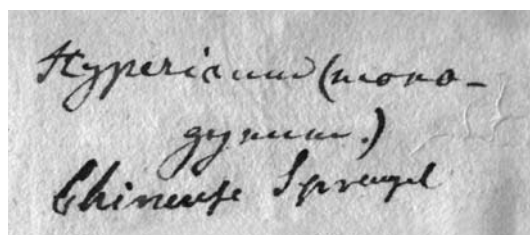 Hypericum (mono-
gynum.)
Chinense Sprengel